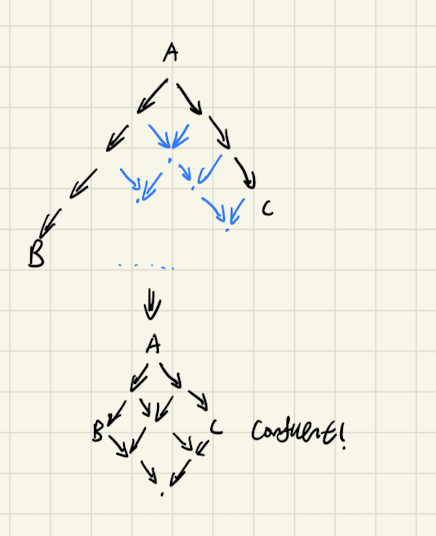 A
C
B
A
B C Confluent!